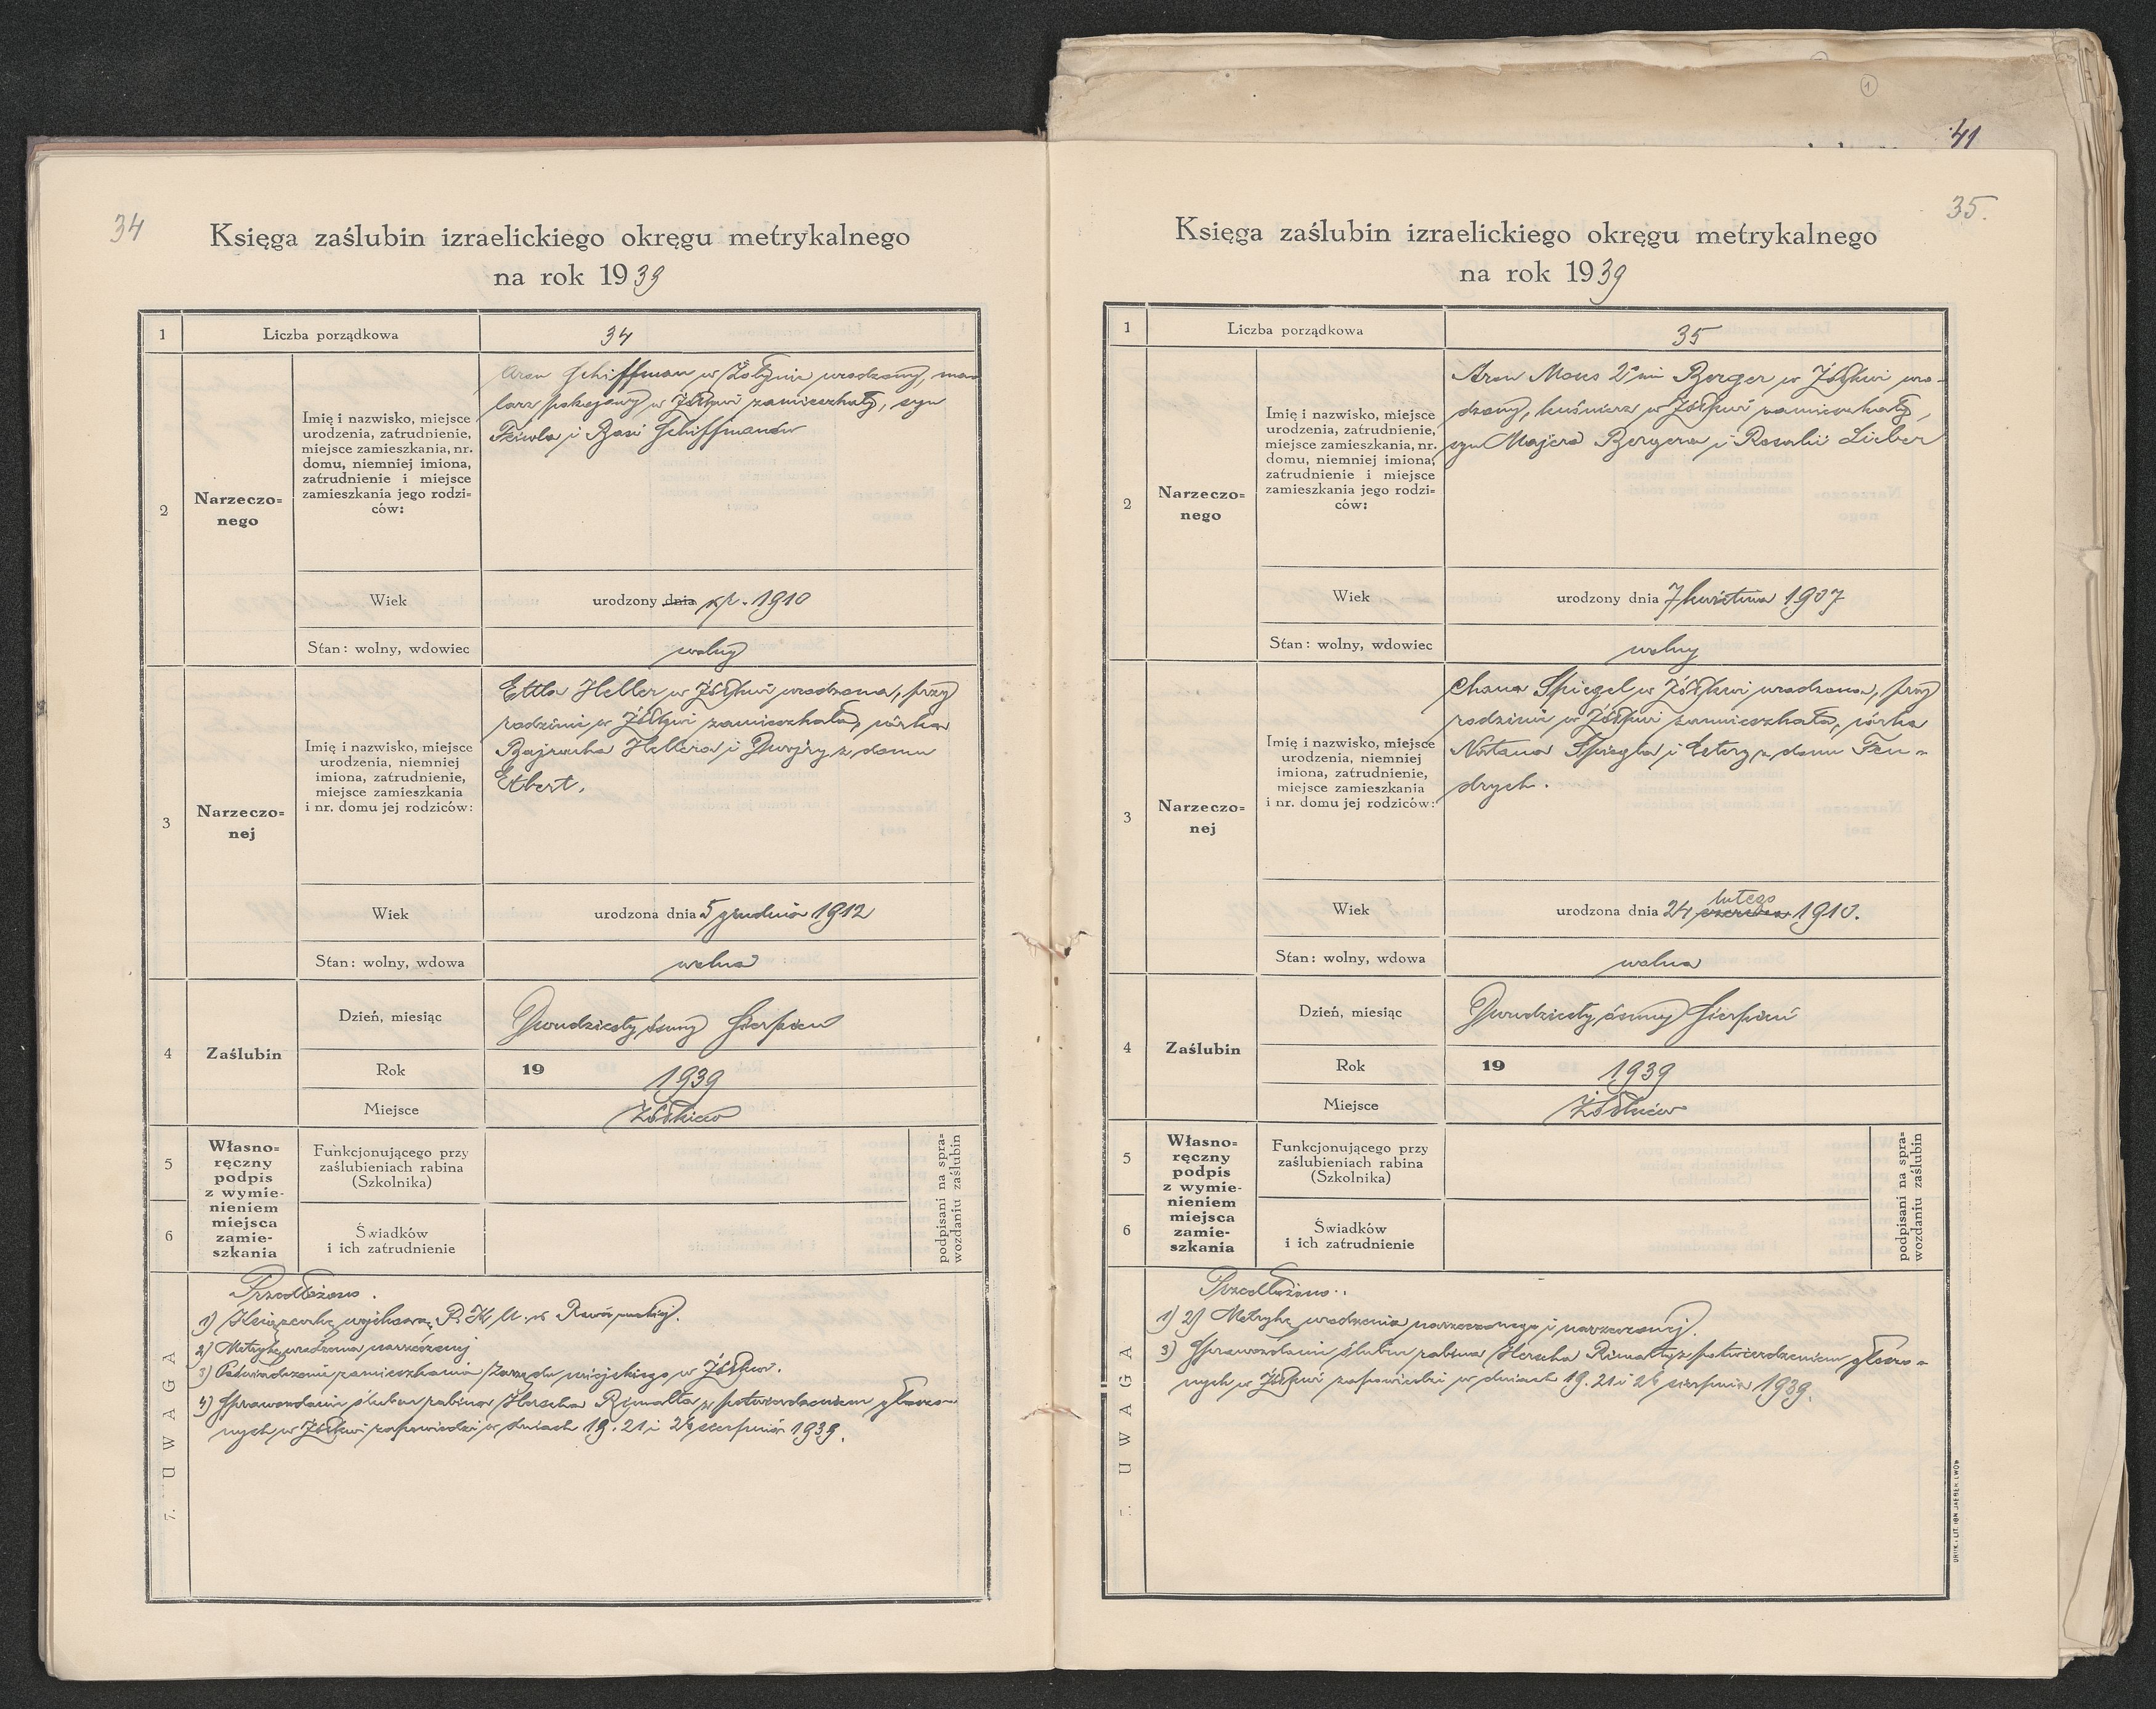 41
34
Księga zaślubin izraelickiego okręgu metrykalnego
na rok 1939
1
Liczba porządkowa
34
2
Narzeczo=
nego
Imię i nazwisko, miejsce
urodzenia, zatrudnienie,
miejsce zamieszkania, nr.
domu, niemniej imiona,
zatrudnienie i miejsce
zamieszkania jego rodzi=
ców:
Aron Schiffman w Żołynie urodzony, ma=
larz pokojowy w Żółkwi zamieszkały, syn
Feiwla i Basi Schiffmanów
Wiek
urodzony dnia 1910
Stan: wolny, wdowiec
wolny
3
Narzeczo=
nej
Imię i nazwisko, miejsce
urodzenia, niemniej
imiona, zatrudnienie,
miejsce zamieszkania
i nr. domu jej rodziców:
Ettla Heller w Żółkwi urodzona, przy
rodzinie w Żółkwi zamieszkała, córka
Bajrucha Hellera i Dwojry z domu
Etbert.
Wiek
urodzona dnia 5 grudnia 1912
Stan: wolny, wdowa
wolna
4
Zaślubin
Dzień, miesiąc
Dwudziesty ósmy Sierpień
Rok
19 1939
Miejsce
Żółkiew
5
6
Własno=
ręczny
podpis
z wymie-
nieniem
miejsca
zamie-
szkania
Funkcjonującego przy
zaślubieniach rabina
(Szkolnika)
Świadków
i ich zatrudnienie
podpisani na spra=
wozdaniu zaślubin
7. UWAGA
Przedłożono.
1) Książeczkę wojskową P.K.U. w Rawie ruskiej.
2) Metrykę urodzenia narzeczonej
3) Poświadczenie zamieszkania Zarządu miejskiego w Żółkwi.
4) Sprawozdanie ślubu rabina Herscha Rimalta z potwierdzeniem głoszo=
nych w Żółkwi zapowiedzi w dniach 19. 21 i 26 sierpnia 1939.
35.
Księga zaślubin izraelickiego okręgu metrykalnego
na rok 1939
1
Liczba porządkowa
35
2
Narzeczo=
nego
Imię i nazwisko, miejsce
urodzenia, zatrudnienie,
miejsce zamieszkania, nr.
domu, niemniej imiona,
zatrudnienie i miejsce
zamieszkania jego rodzi=
ców:
Aron Mons 2im Berger w Żółkwi uro=
dzony, kuśnierz w Żółkwi zamieszkały,
syn Majera Bergera i Rosalii Lieber
Wiek
urodzony dnia 7 kwietnia 1907
Stan: wolny, wdowiec
wolny
3
Narzeczo=
nej
Imię i nazwisko, miejsce
urodzenia, niemniej
imiona, zatrudnienie,
miejsce zamieszkania
i nr. domu jej rodziców:
Chana Spiegel w Żółkwi urodzona, przy
rodzinie w Żółkwi zamieszkała, córka
Natana Spiegla i Estery z domu Fen=
drych.
Wiek
lutego
urodzona dnia 24 czerwca 1910.
Stan: wolny, wdowa
wolna
4
Zaślubin
Dzień, miesiąc
Dwudziesty ósmy Sierpień
Rok
19 1939
Miejsce
Żółkiew
5
6
Własno=
ręczny
podpis
z wymie-
nieniem
miejsca
zamie-
szkania
Funkcjonującego przy
zaślubieniach rabina
(Szkolnika)
Świadków
i ich zatrudnienie
podpisani na spra=
wozdaniu zaślubin
7. UWAGA
Przedłożono.
1) 2) Metrykę urodzenia narzeczonego i narzeczonej.
3) Sprawozdanie ślubu rabina Herscha Rimalta z potwierdzeniem głoszo=
nych w Żółkwi zapowiedzi w dniach 19. 21 i 26 sierpnia 1939.
DRUK. I LIT. IGN. JAEGER, LWÓW